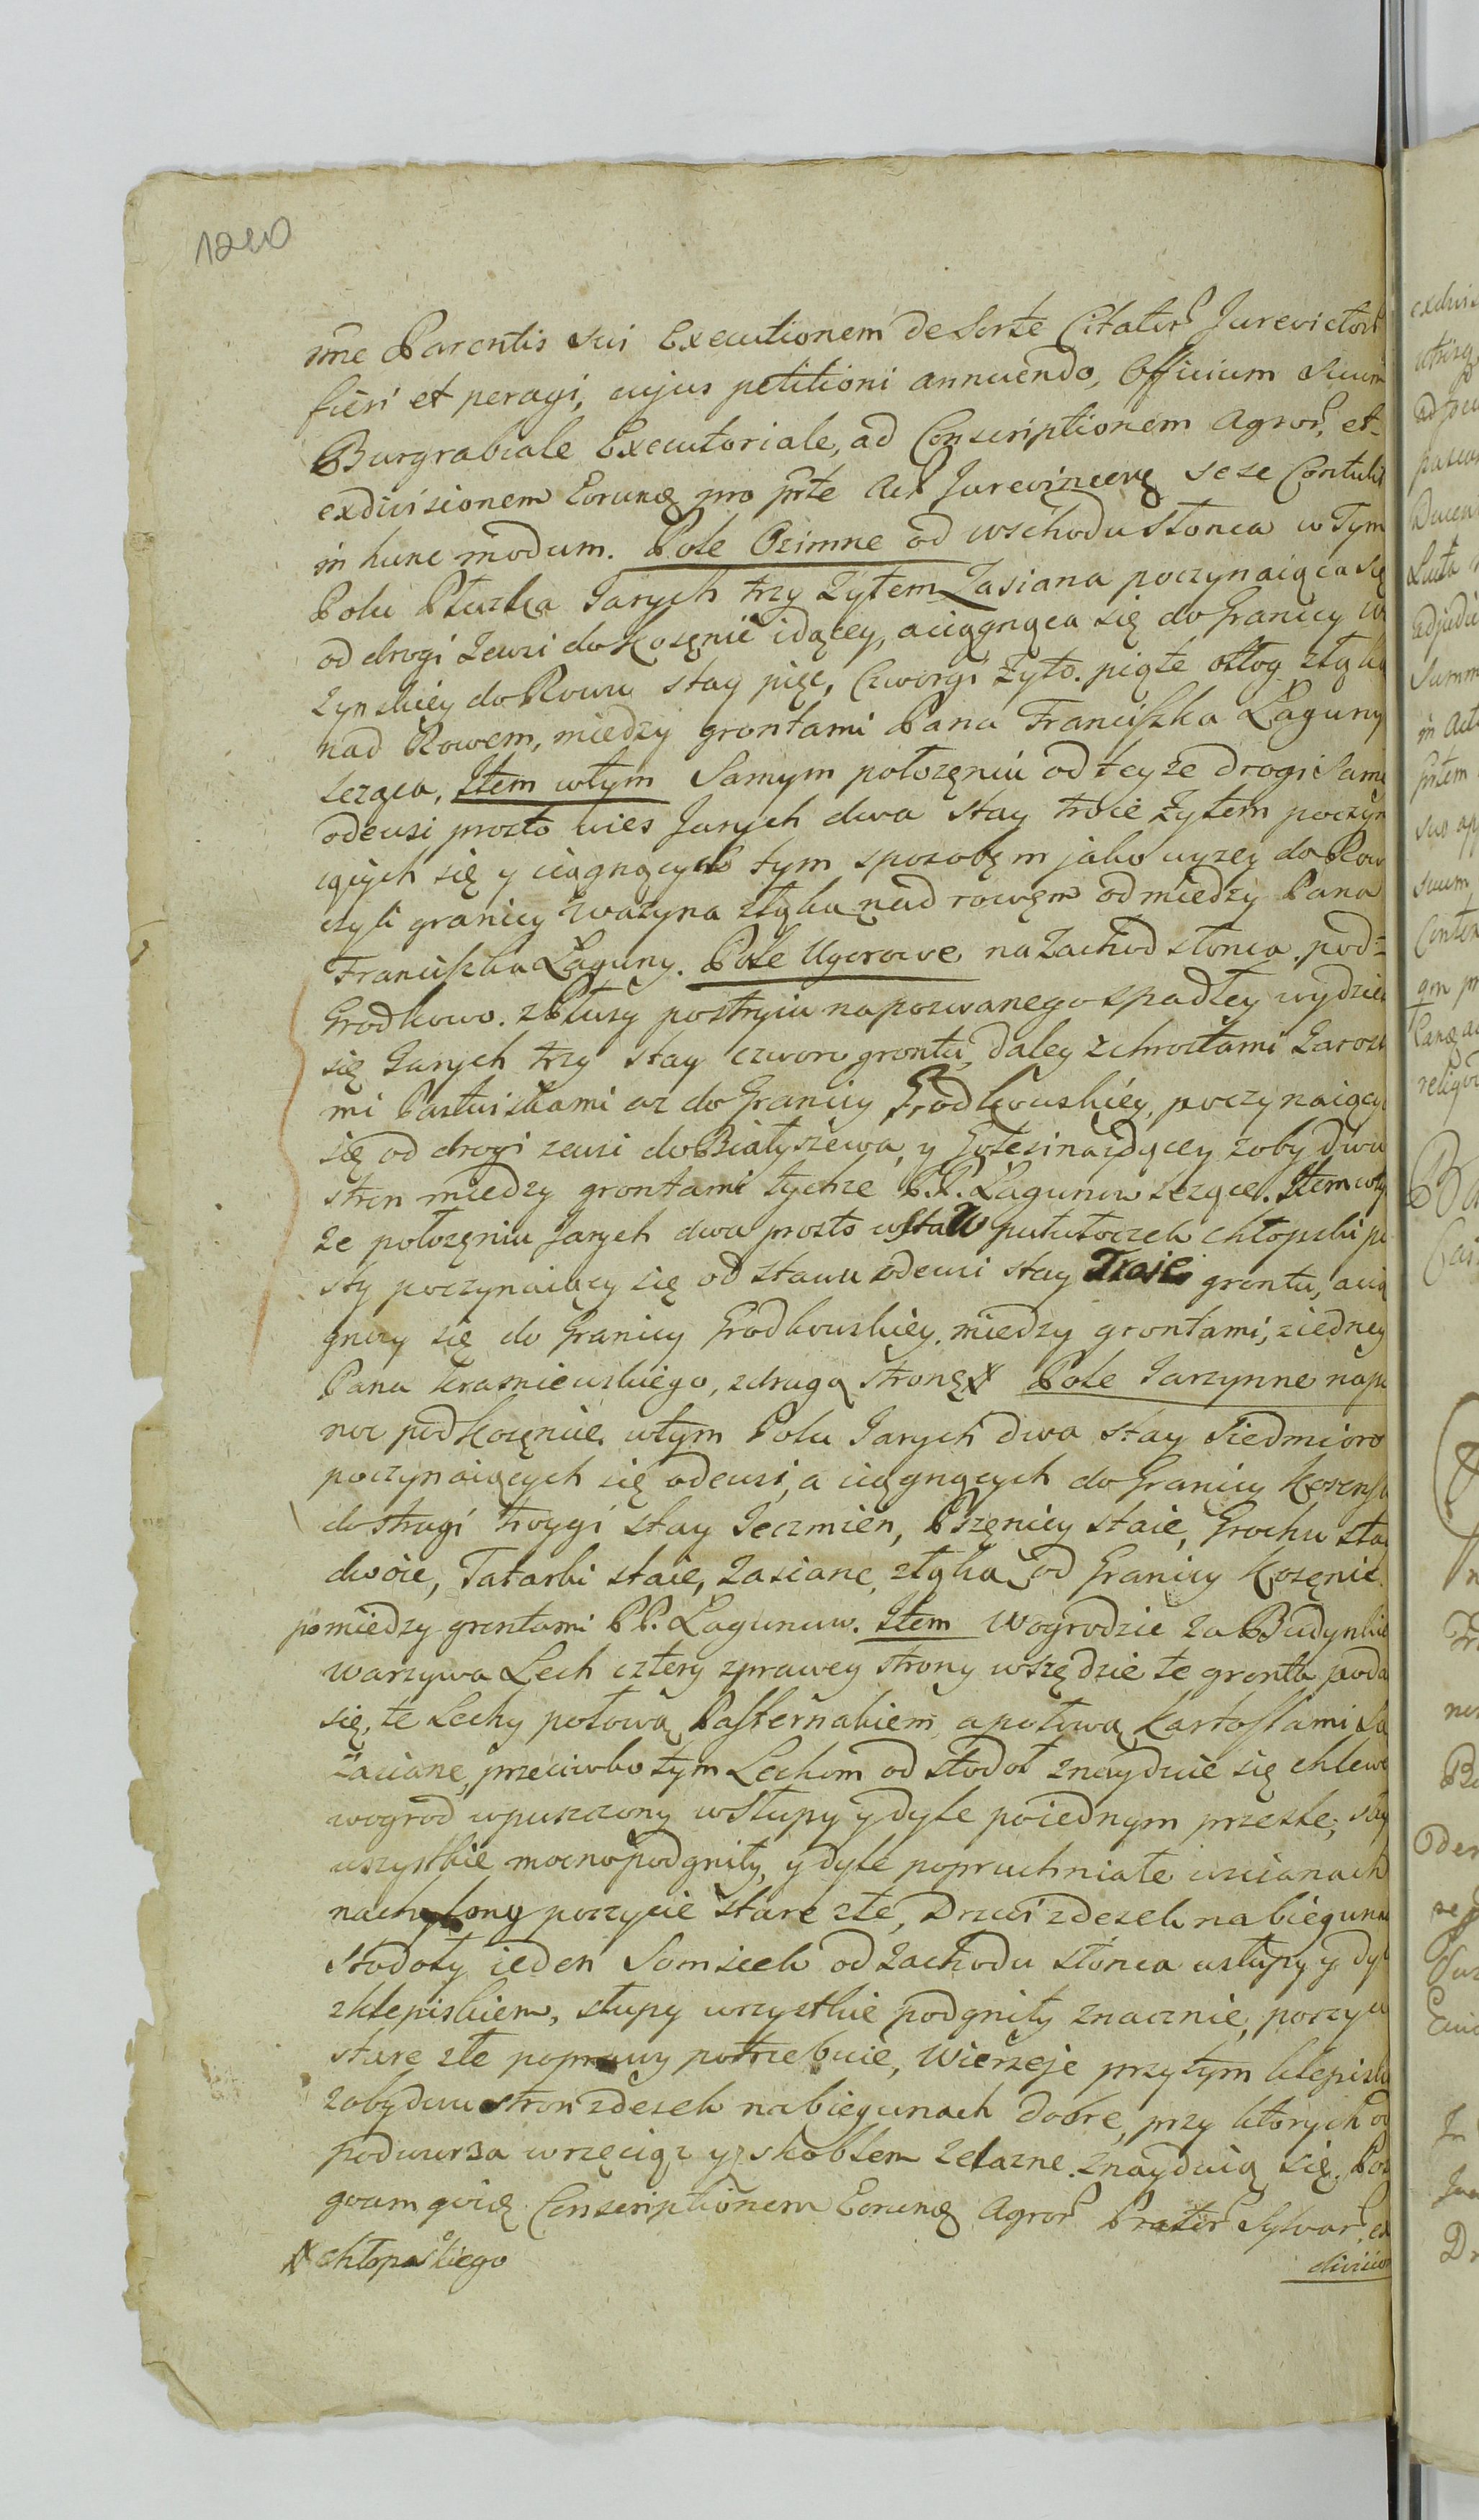 1220
me Parentis sui Executionem de Sorte Citator Jurevictor
fieri et peragi, cujus petitioni annuendo, Officium Suum
Burgrabiale Executoriale, ad Conscriptionem Agror, et
exdivisionem Eorunq pro prte Act Jurevincenq sese Contulit
in hunc modum. Pole Ozimne od wschodu Słonca w Tym
Polu Płuska Jarych trzy żytem Zasiana poczynaiąca się
od drogi zewsi do Kosęnic idącey, a ciągnąca się do Granicy
zynskiey do Rowu stay pięc, Czworgi żyto. piąte odłog złąka
nad Rowem, miedzy grontami Pana Franciszka Łaguny
leząca, Item wtym Samym położęniu od teyze drogi Same
odewsi prosto wies Jarych dwa stay troie żytem poczyn
iących się y ciągnących tym sposobęm jako wyzey do Row
czyli granicy Wazyna złąką nad rowęm od miedzy Pana
Franciszka Łaguny. Pole Ugorowe na Zachod słonca pod=
Grodkowo. z Płusy postryiu napozwanego spadłey wydzie
się Jarych trzy stay czworo grontu, daley zchrostami Zarost
mi Pastwiskami az do Granicy Grodkowskiey, poczynaiący
się od drogi zewsi do Białyszewa, y Gołesina idącey zoby dwu
stron miedzy grontami tychze P.P. Łagunow lezące. Item wty
ze położęniu Jarych dwa prosto wstaw putwtoczek chłopski pu
sty poczynaiący się od stawu odewsi stay Troie grontu, a cią
gnący się do Granicy Grodkowskiey, miedzy grontami, ziedney
Pana Krasniewskiego, zdrugą stronę # Pole Jarzynne napu
noc pod Kosęnice, wtym Polu Jarych dwa stay Siedmioro
poczynaiących się odewsi, a ciągnących do Granicy Kosens
do strugi troygi stay Jeczmien, Pszęnicy staie, Grochu sta
dwoie, Tatarki staie, zasiane, złąka od Granicy Kosęnic.
pomiedzy grontami PP. Łagunuw. Item Wogrodzie za Budynkie
Warzywa Lech cztery zprawey strony wszędzie te gronta poda
się, te Lechy połową Pasternakiem, a połową Kartoflami Sa
zaciane, przeciwko tym Lechom od stodoł znayduie się chlewe
wogrod wpuszczony wstupy y dyle poiednym przęsle, stu
wszystkie mocno podgniły, y dyle popruchniałe wscianach
nachylony poszycie stare złe, Drzwi zdesek nabieguna
Stodoły ieden Somsiek od zachodu słonca wstupy y dyl
zklepiskiem, stupy wszystkie podgniły znacznie, poszyci
stare złe poprawy potrzebuie, Wierzeje przytym klepisku
zobydwu stron zdesek nabiegunach dobre, przy ktorych od
podwurza wrzęciąz y skoblem zelazne znayduią się. Post
quam quię Conscriptionem Eorunq Agror Prator Sylvar, ex
# chłopskiego
division